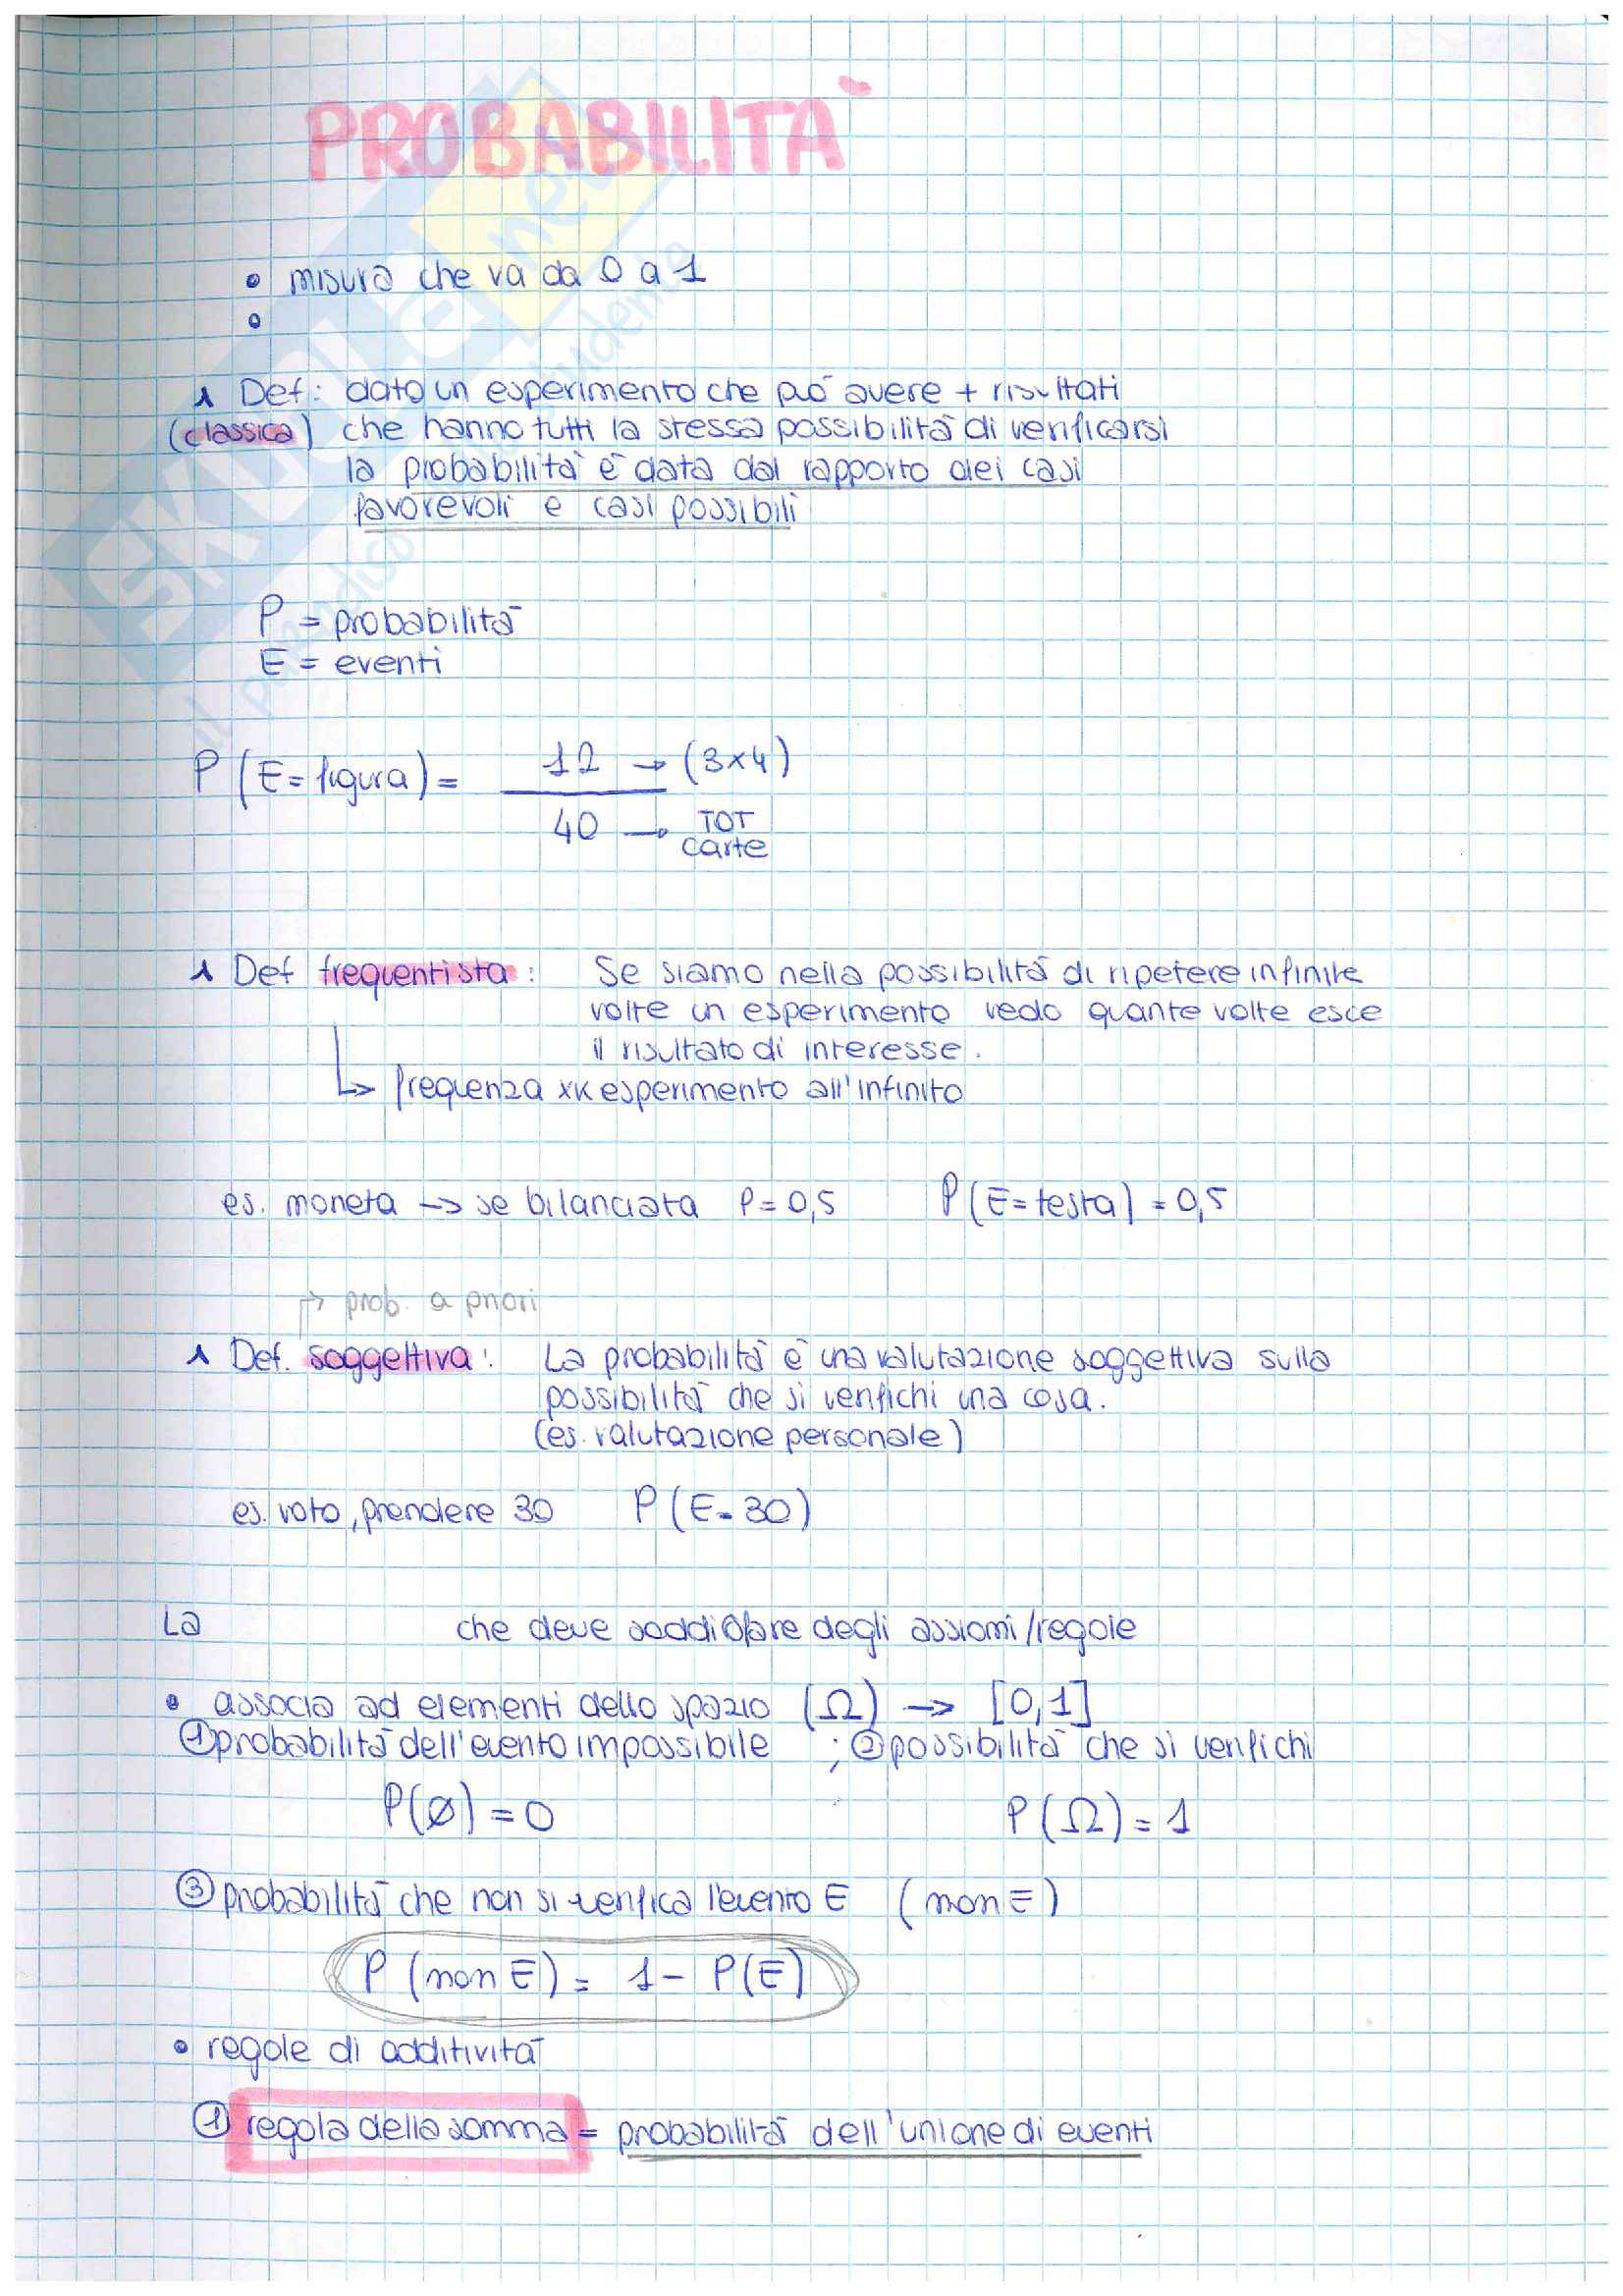 PROBABILITÀ
• misura che va da 0 a 1
•
1 Def: dato un esperimento che può avere + risultati
(classica) che hanno tutti la stessa possibilità di verificarsi
la probabilità è data dal rapporto dei casi
favorevoli e casi possibili
P = probabilità
E = eventi
P (E = figura) = 12 → (3x4)
40 → TOT carte
1 Def frequentista: Se siamo nella possibilità di ripetere infinite
volte un esperimento vedo quante volte esce
il risultato di interesse.
↳ frequenza xk esperimento all'infinito
es. moneta → se bilanciata P = 0,5 P (E = testa) = 0,5
→ prob. a priori
1 Def. soggettiva: La probabilità è una valutazione soggettiva sulla
possibilità che si verifichi una cosa.
(es. valutazione personale)
es. voto, prendere 30 P (E = 30)
La che deve soddisfare degli assiomi/regole
• associa ad elementi dello spazio (Ω) → [0,1]
① probabilità dell'evento impossibile ; ② possibilità che si verifichi
P(∅) = 0 P (Ω) = 1
③ probabilità che non si verifica l'evento E (non E)
P (non E) = 1 - P(E)
• regole di additività
① regola della somma = probabilità dell'unione di eventi
SKUOLA.net
il paradiso dello studente